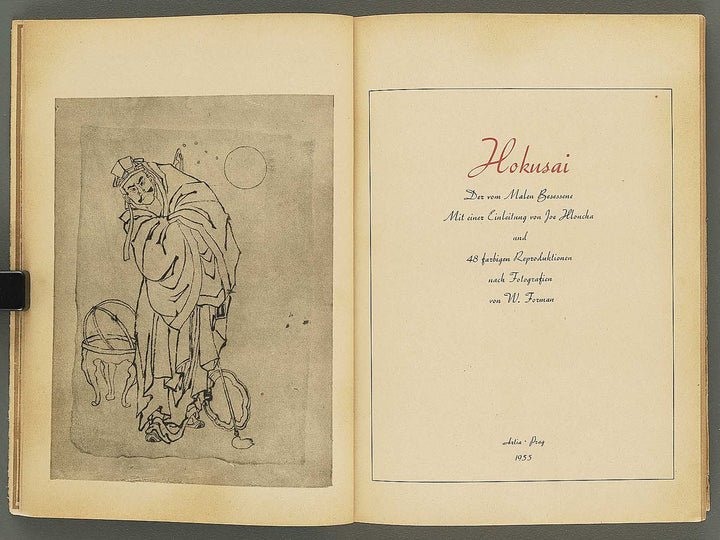 Hokusai
Der vom Malen Besessene
Mit einer Einleitung von Joe Hloucha
und
48 farbigen Reproduktionen
nach Fotografien
von W. Forman
Artia · Prag
1955